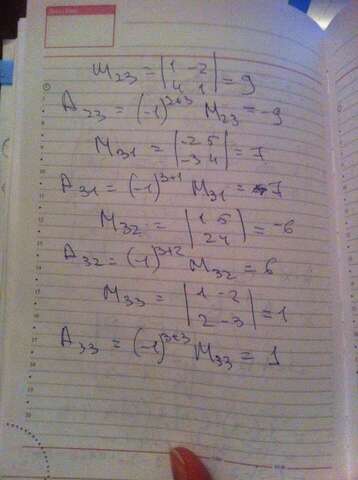 M₂₃ = |1 -2; 4 1| = 9
A₂₃ = (-1)²⁺³ M₂₃ = -9
M₃₁ = |-2 5; -3 4| = 7
A₃₁ = (-1)³⁺¹ M₃₁ = 7
M₃₂ = |1 5; 2 4| = -6
A₃₂ = (-1)³⁺² M₃₂ = 6
M₃₃ = |1 -2; 2 -3| = 1
A₃₃ = (-1)³⁺³ M₃₃ = 1